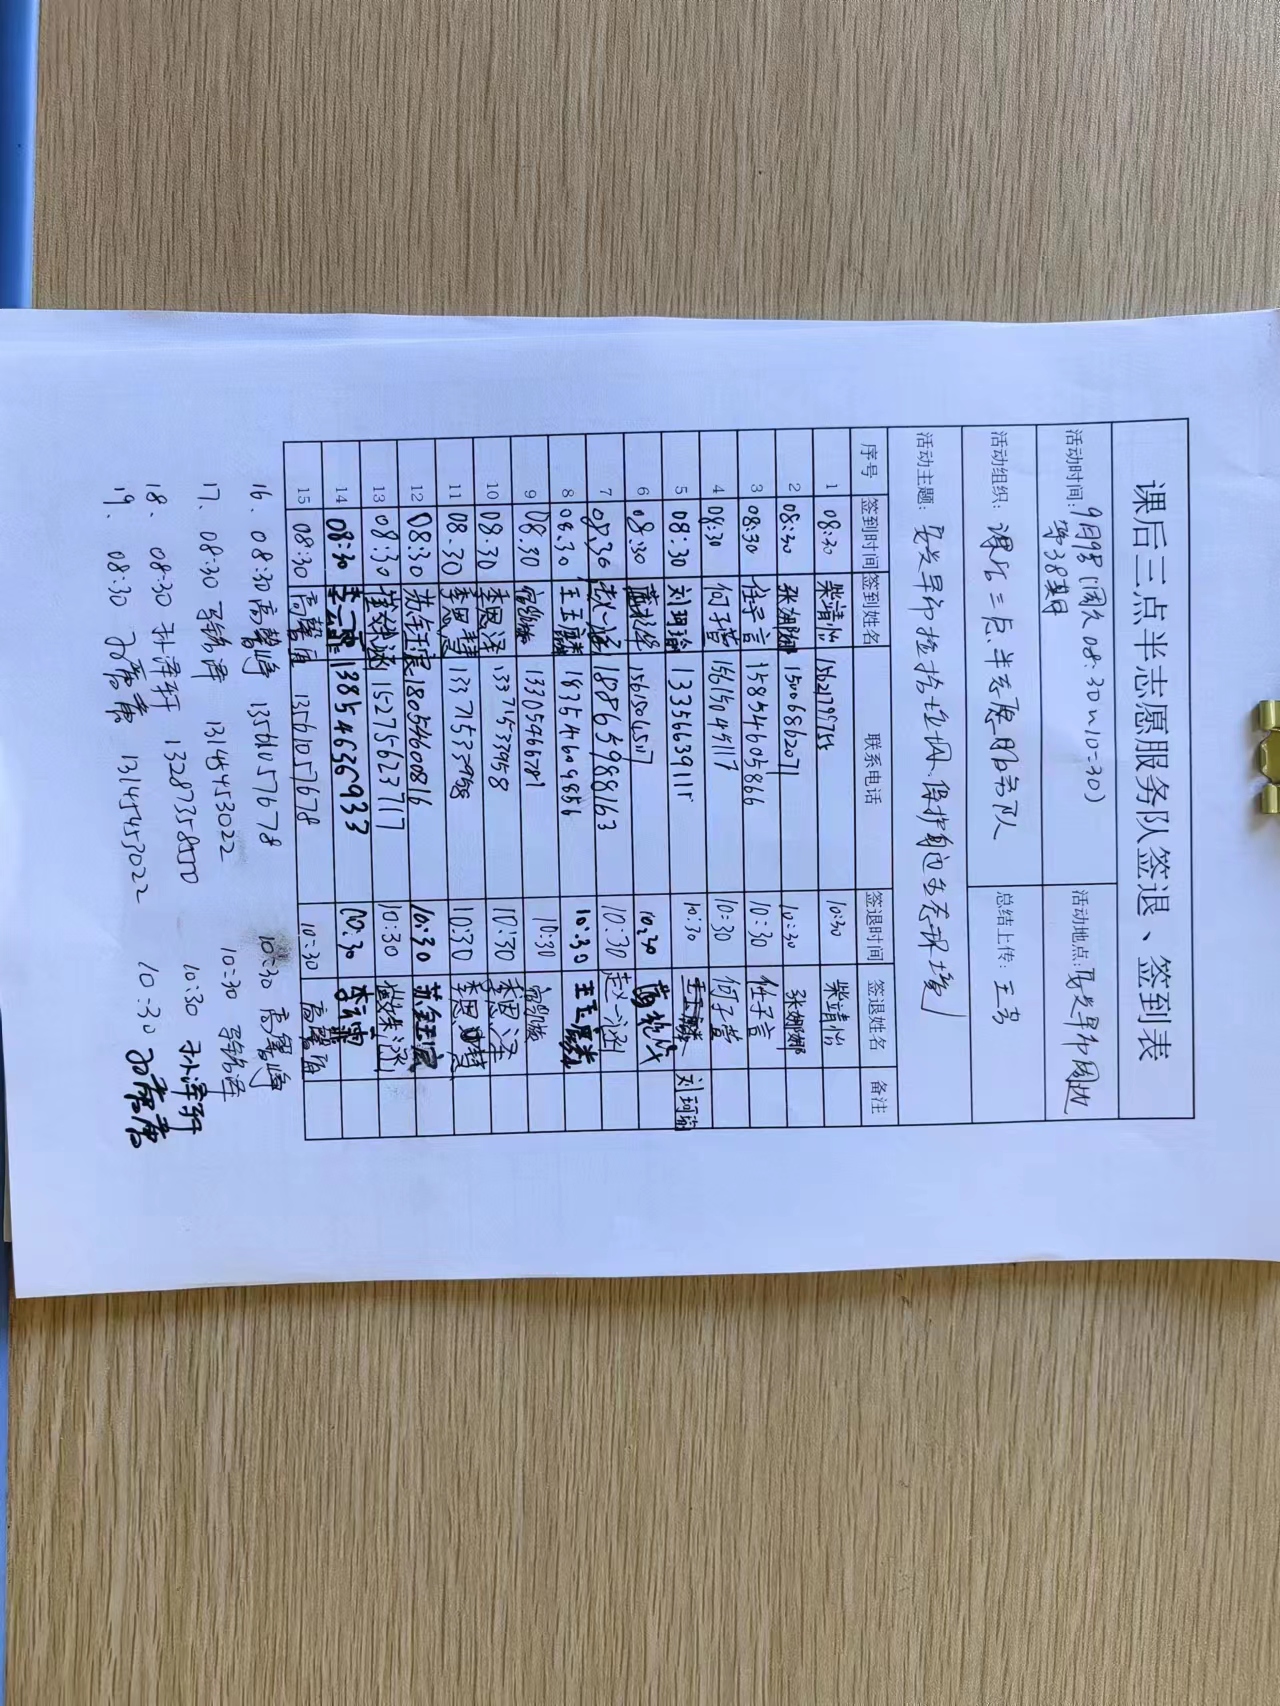 课后三点半志愿服务队签退、签到表
活动时间:9月9号(周六08:30~10:30) 活动地点:
第38期
活动组织: 课后三点半志愿服务队 总结上传: 王芳
活动主题: 捡拾垃圾、保护身边生态环境
序号 签到时间 签到姓名 联系电话 签退时间 签退姓名 备注
1 08:30 柴靖怡 10:30 柴靖怡
2 08:30 张娜娜 15006862071 10:30 张娜娜
3 08:30 任子言 15854605866 10:30 任子言
4 08:30 何子萱 15615045117 10:30 何子萱
5 08:30 刘珂瑜 13356639115 10:30 刘珂瑜
6 08:30 10:30
7 08:30 赵一涵 18865988163 10:30 赵一涵
8 08:30 王玉麟 18754609856 10:30 王玉麟
9 08:30 13305466781 10:30
10 08:30 季思泽 13371533958 10:30 季思泽
11 08:30 季思慧 13371533958 10:30 季思慧
12 08:30 苏钰宸 18054600816 10:30 苏钰宸
13 08:30 15275623717 10:30
14 08:30 李云霏 13854636933 10:30 李云霏
15 08:30 高馨值 13561057678 10:30 高馨值
16. 08:30 高馨峰 13561057678 10:30 高馨峰
17. 08:30 13145453022 10:30
18. 08:30 孙泽轩 13287358550 10:30 孙泽轩
19. 08:30 13145453022 10:30